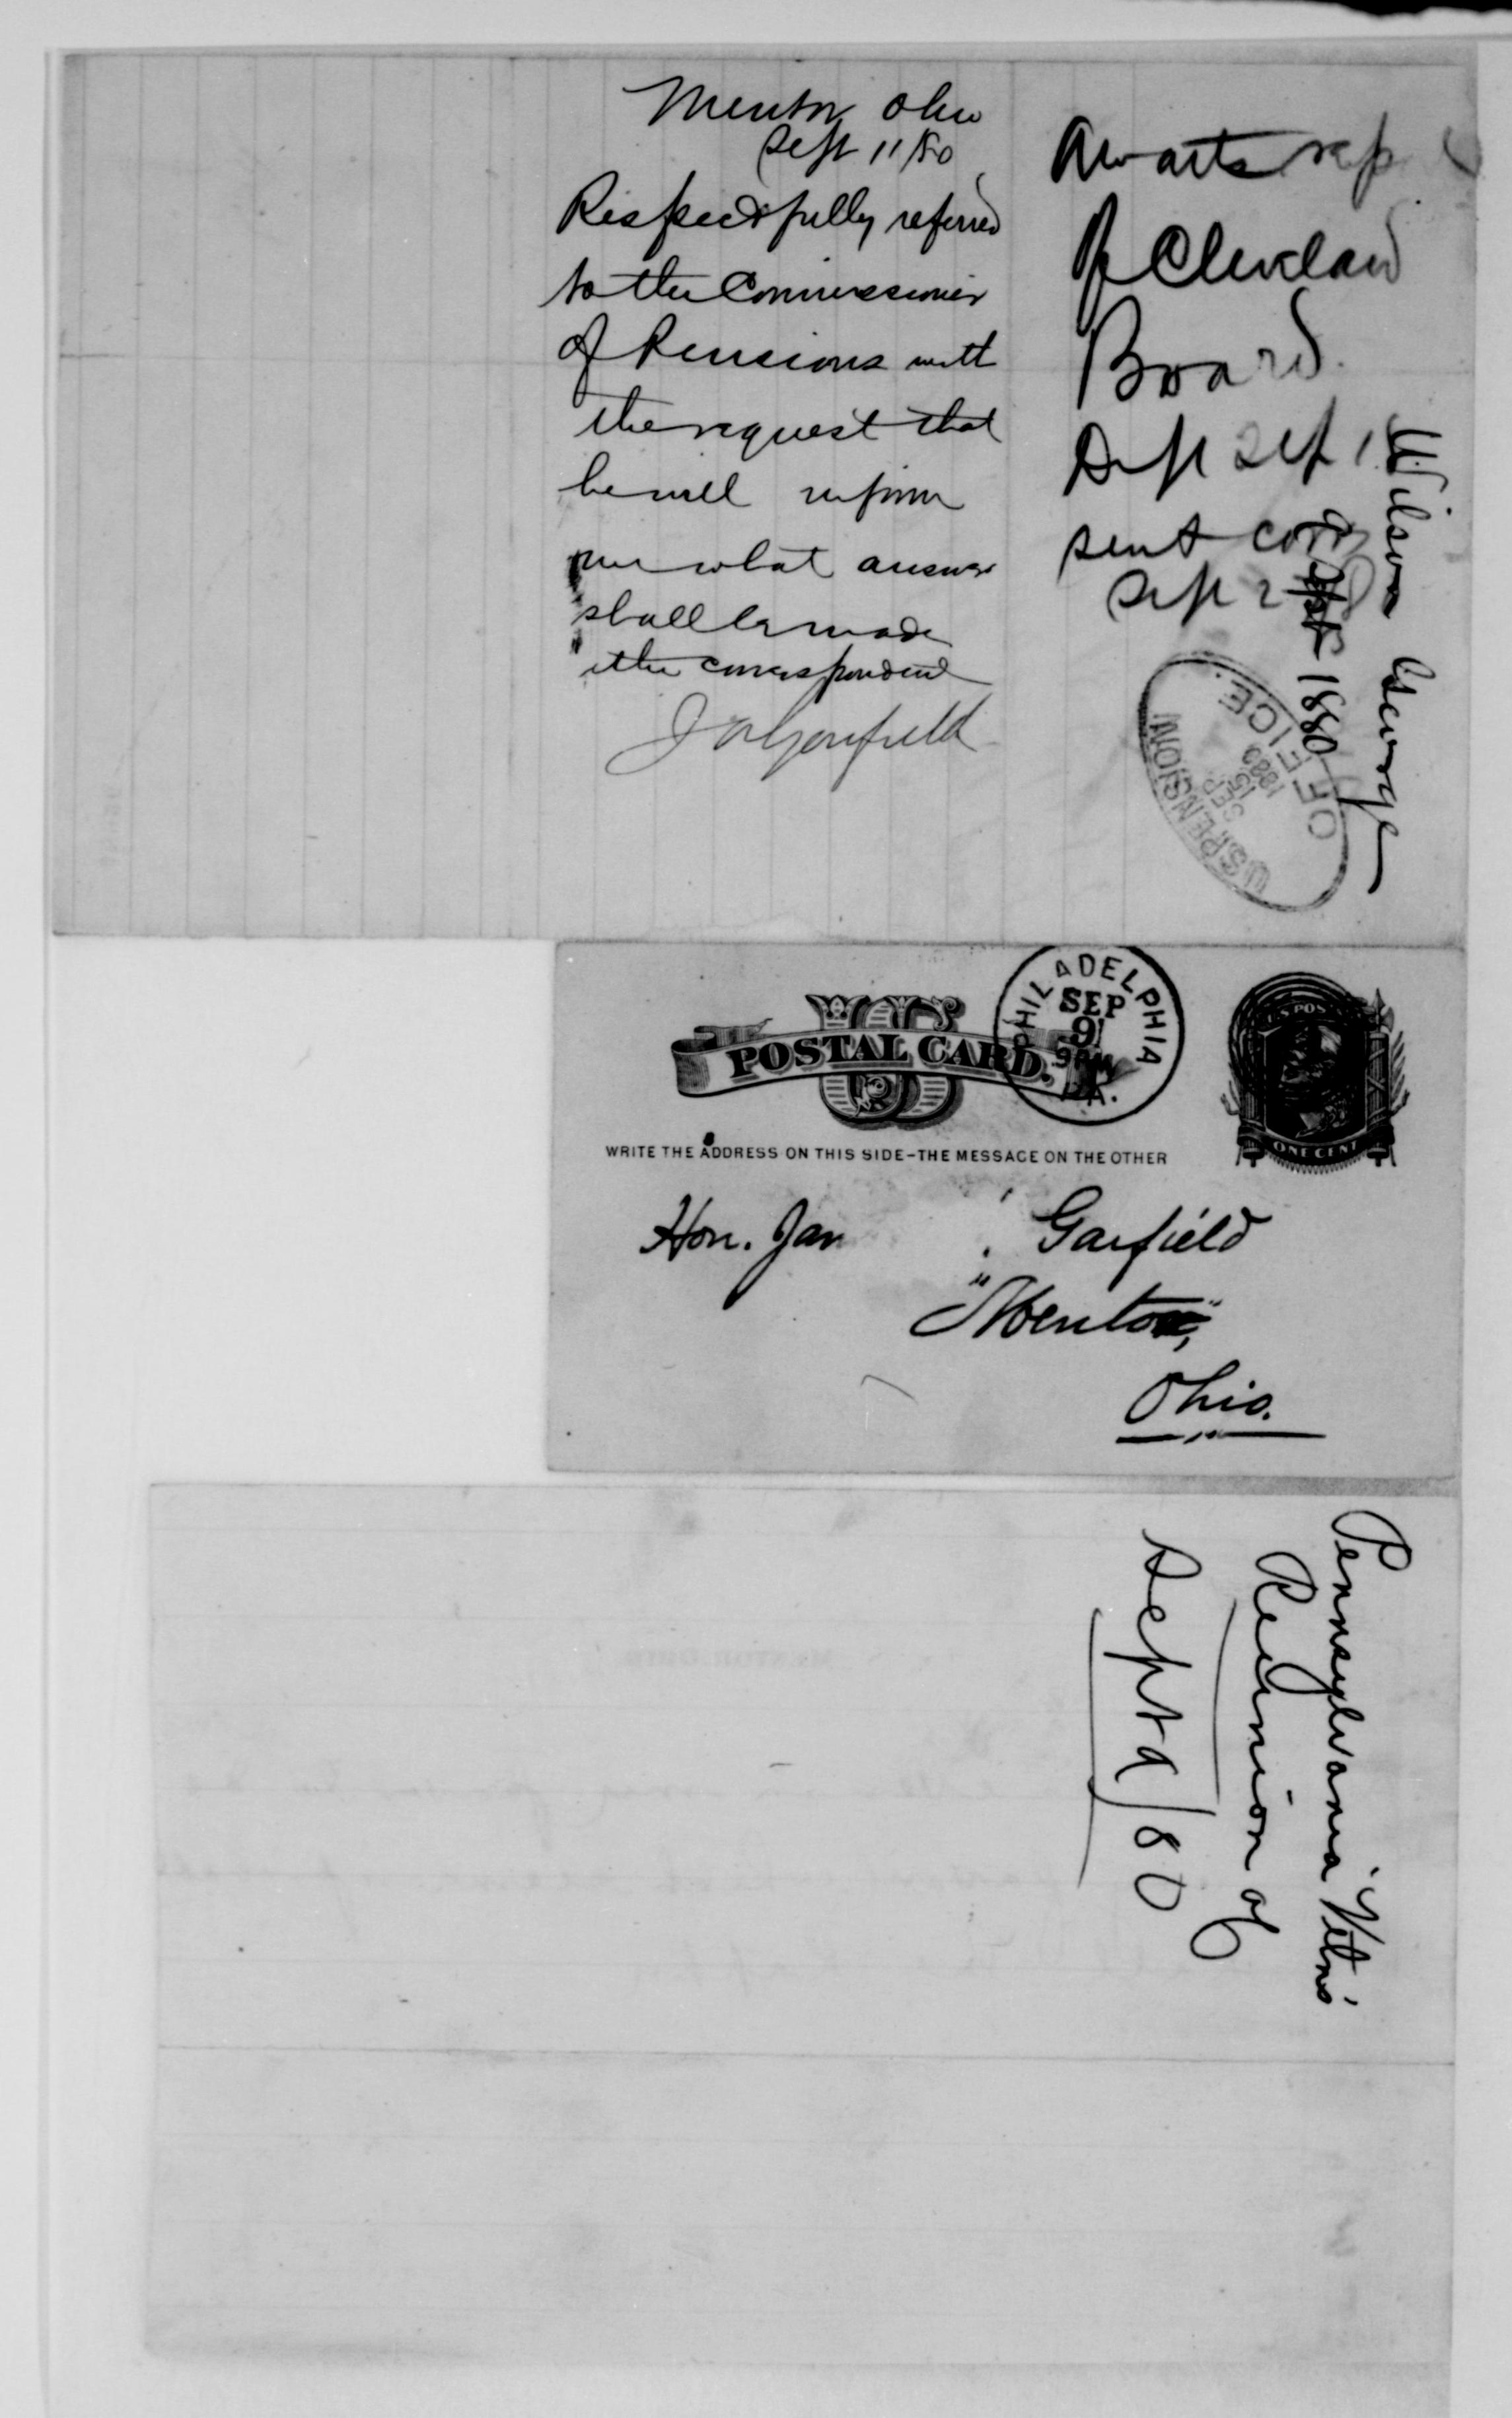 Mentor Ohio
Sept 11/80
Respectfully referred
to the Commissioner
of Pensions with
the request that
he will inform
me what answer
shall be made
the correspondent
J A Garfield
Awaits rep
of Cleveland
Board.
Sept
sent
Sept 2
Wilson George
Sept 1880
U.S. PENSION
OFFICE.
SEP
15
1880
PHILADELPHIA
SEP
9
9 AM
PA.
US
POSTAL CARD.
ONE CENT
WRITE THE ADDRESS ON THIS SIDE-THE MESSAGE ON THE OTHER
Hon. Jam Garfield
"Mentor,"
Ohio.
Pennsylvania Vetns'
Reunion of
Sept 9/80